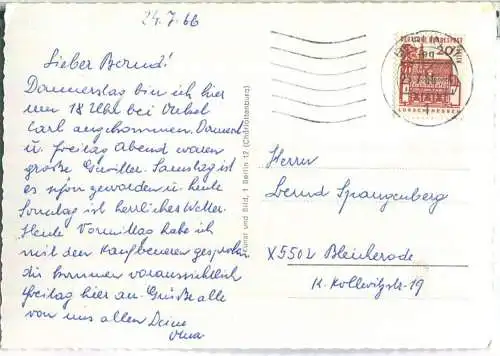 24.7.66
Lieber Bernd!
Donnerstag bin ich hier
um 18 Uhr bei Onkel
Carl angekommen. Donnerst
u. Freitag Abend waren
große Gewitter. Samstag ist
es schön geworden u. heute
Sonntag ist herrliches Wetter.
Heute Vormittag habe ich
mit den Kaufbeurer gesprochen
die kommen voraussichtlich
Freitag hier an. Grüße alle
von uns allen Deine
Oma
Kunst und Bild, 1 Berlin 12 (Charlottenburg)
DEUTSCHE BUNDESPOST
LORSCH/HESSEN
Herrn
Bernd Spangenberg
X5502 Bleicherode
K. Kollwitzstr. 19